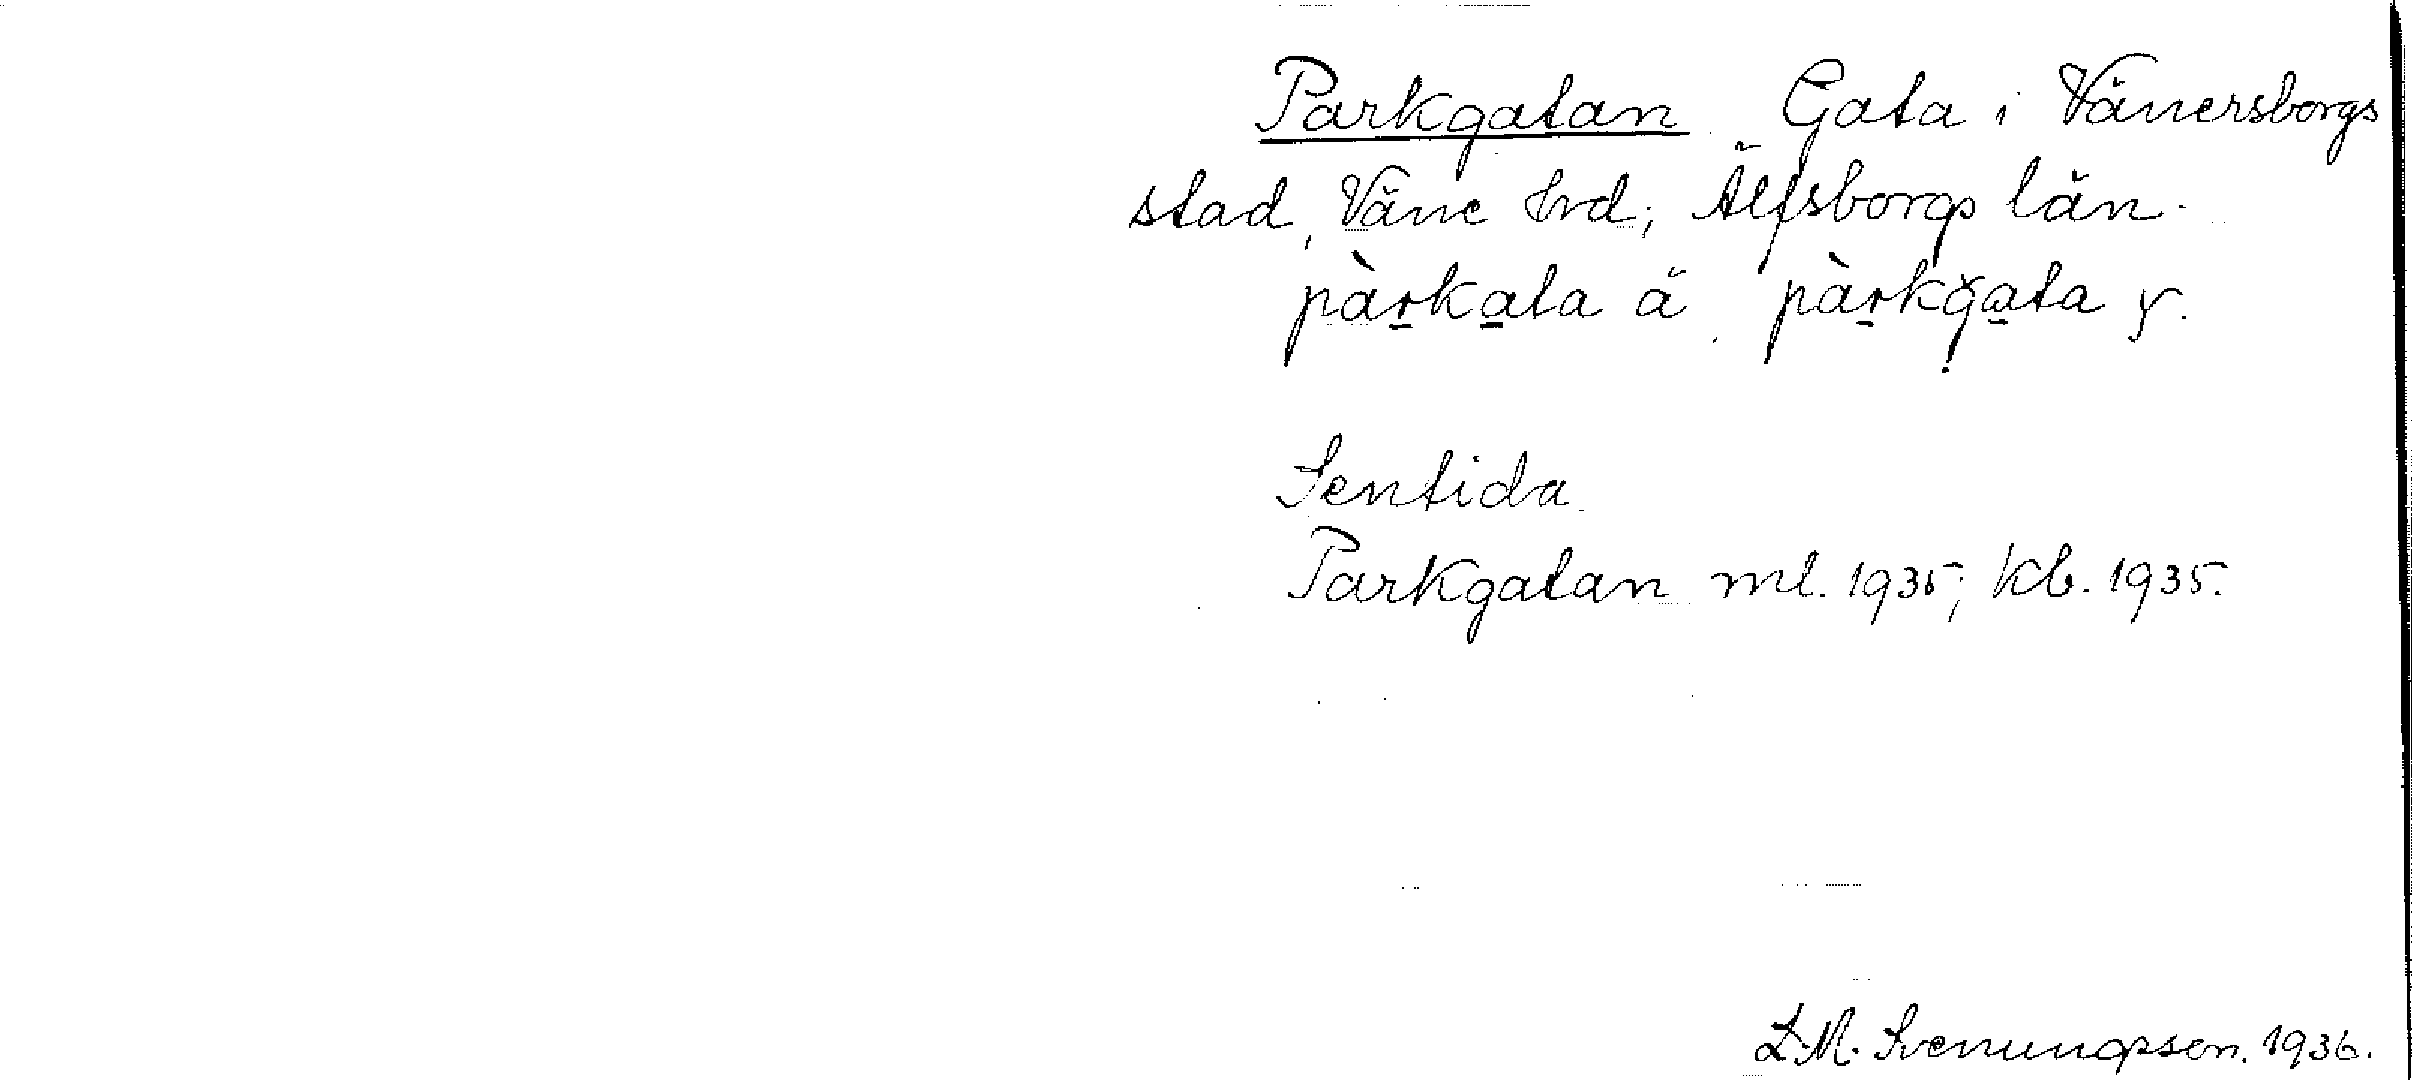 Parkgatan Gata i Vänersborgs
stad, Väne hrd, Älfsborgs län.
pàrkata ä pàrkgata y.
Sentida
Parkgatan ml. 1935; kb. 1935.
L.M. Svenungsson. 1936.